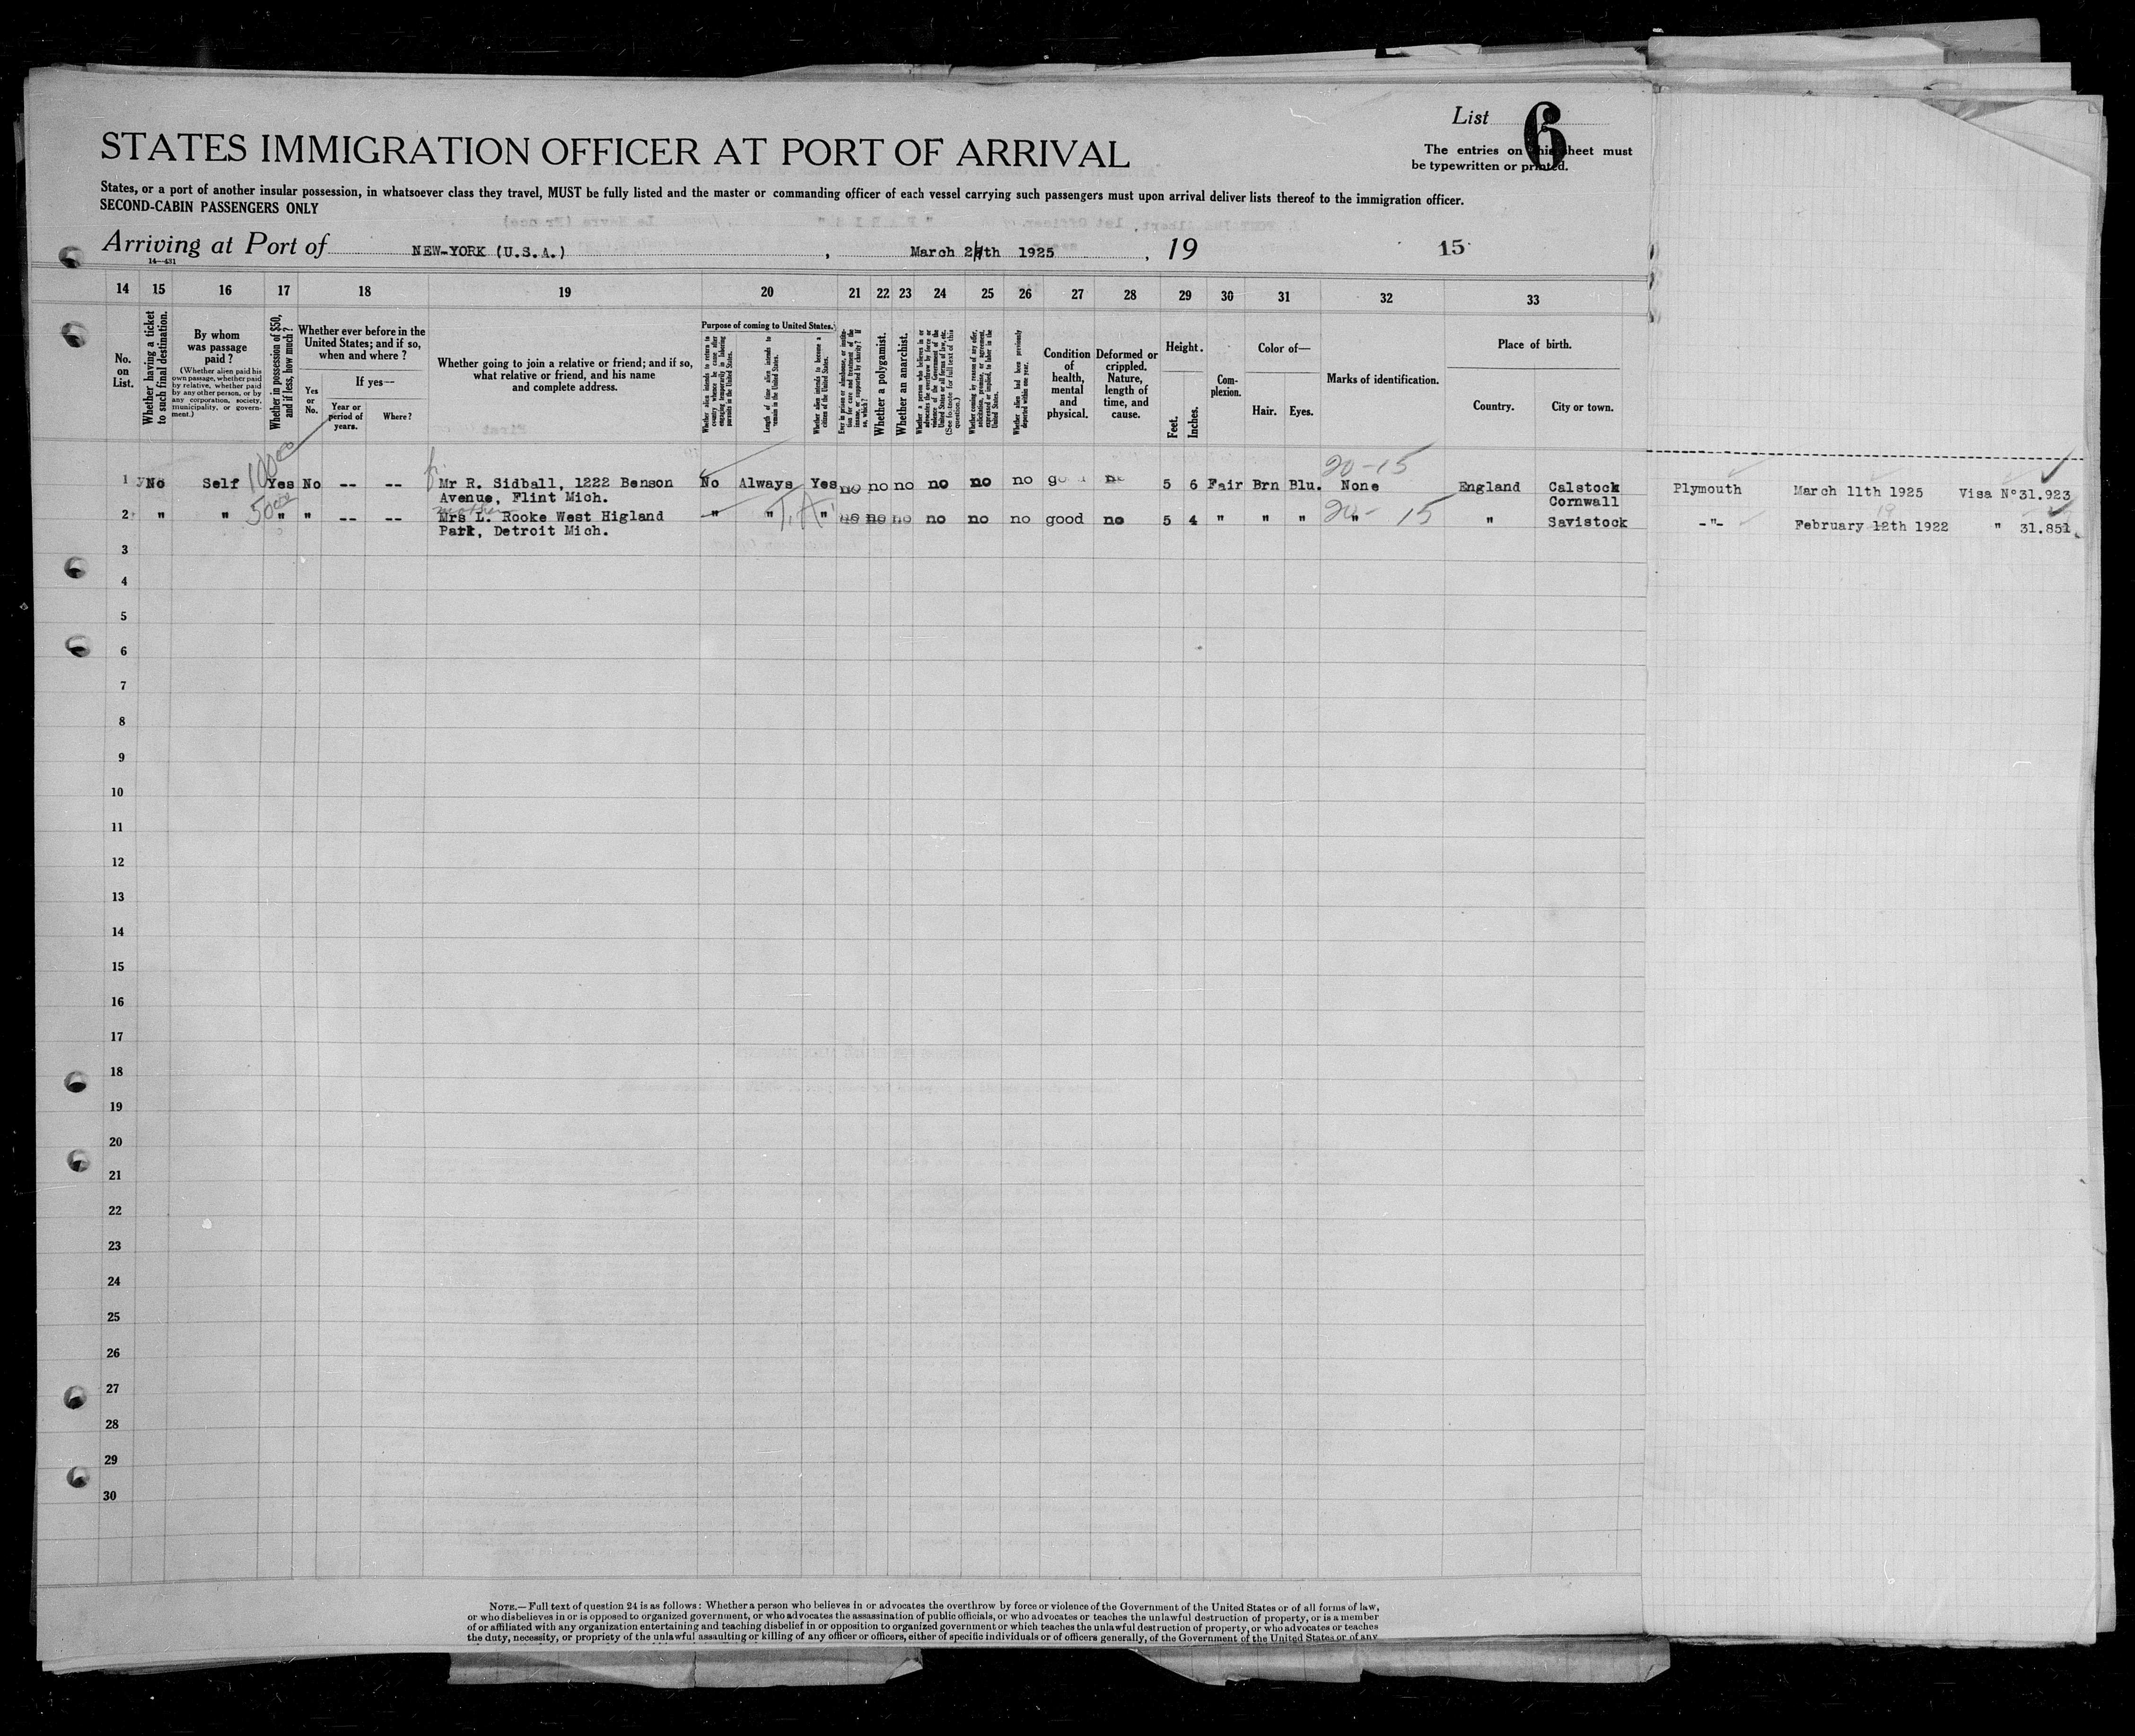 List 6
STATES IMMIGRATION OFFICER AT PORT OF ARRIVAL
The entries on this sheet must
be typewritten or printed.
States, or a port of another insular possession, in whatsoever class they travel, MUST be fully listed and the master or commanding officer of each vessel carrying such passengers must upon arrival deliver lists thereof to the immigration officer.
SECOND-CABIN PASSENGERS ONLY
Arriving at Port of NEW-YORK (U.S.A.) , March 2th 1925 , 19 15
14—431
14 15 16 17 18 19 20 21 22 23 24 25 26 27 28 29 30 31 32 33
No. on List.
Whether having a ticket to such final destination.
By whom was passage paid?
(Whether alien paid his own passage, whether paid by relative, whether paid by any other person, or by any corporation, society, municipality, or government.)
Whether in possession of $50, and if less, how much?
Whether ever before in the United States; and if so, when and where?
Yes or No.
If yes—
Year or period of years.
Where?
Whether going to join a relative or friend; and if so, what relative or friend, and his name and complete address.
Purpose of coming to United States.
Whether alien intends to return to country whence he came after engaging temporarily in laboring pursuits in the United States.
Length of time alien intends to remain in the United States.
Whether alien intends to become a citizen of the United States.
Ever in prison or almshouse, or institution for care and treatment of the insane, or supported by charity? If so, which?
Whether a polygamist.
Whether an anarchist.
Whether a person who believes in or advocates the overthrow by force or violence of the Government of the United States or all forms of law, etc. (See footnote for full text of this question.)
Whether coming by reason of any offer, solicitation, promise, or agreement, expressed or implied, to labor in the United States.
Whether alien had been previously deported within one year.
Condition of health, mental and physical.
Deformed or crippled. Nature, length of time, and cause.
Height.
Feet.
Inches.
Complexion.
Color of—
Hair.
Eyes.
Marks of identification.
Place of birth.
Country.
City or town.
100
20-15
1 No Self Yes No -- -- Mr R. Sidball, 1222 Benson No Always Yes no no no no no no good no 5 6 Fair Brn Blu. None England Calstock Plymouth March 11th 1925 Visa N° 31.923
Avenue, Flint Mich. Cornwall
50 mother T.A. 20-15 19
2 " " " " -- -- Mrs L. Rooke West Higland " " " no no no no no no good no 5 4 " " " " " Savistock -"- February 12th 1922 " 31.851
Park, Detroit Mich.
3
4
5
6
7
8
9
10
11
12
13
14
15
16
17
18
19
20
21
22
23
24
25
26
27
28
29
30
NOTE.—Full text of question 24 is as follows: Whether a person who believes in or advocates the overthrow by force or violence of the Government of the United States or of all forms of law,
or who disbelieves in or is opposed to organized government, or who advocates the assassination of public officials, or who advocates or teaches the unlawful destruction of property, or is a member
of or affiliated with any organization entertaining and teaching disbelief in or opposition to organized government or which teaches the unlawful destruction of property, or who advocates or teaches
the duty, necessity, or propriety of the unlawful assaulting or killing of any officer or officers, either of specific individuals or of officers generally, of the Government of the United States or of any